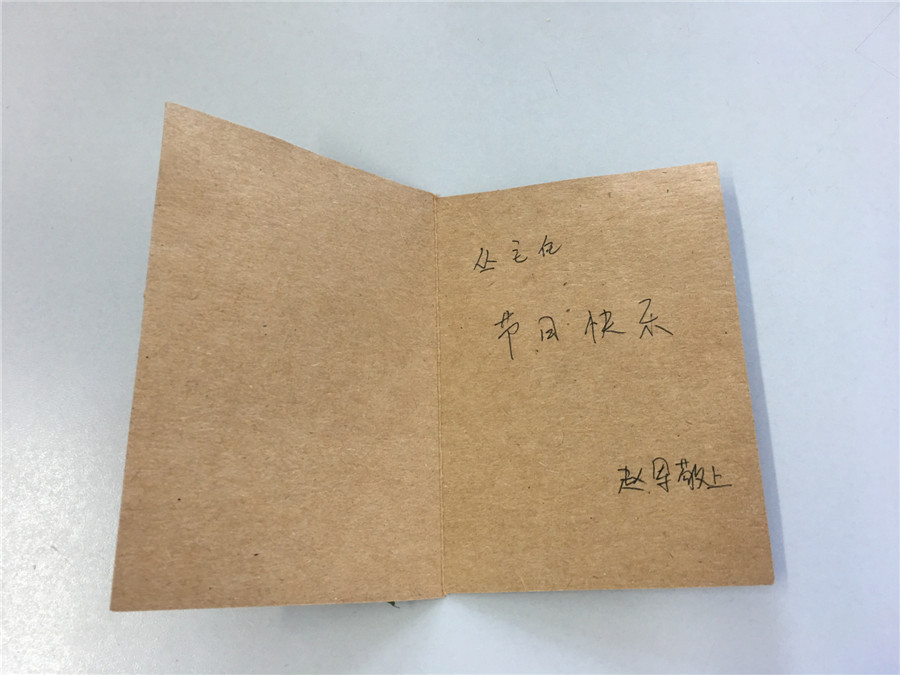 丛主任
节日快乐
赵恩敬上